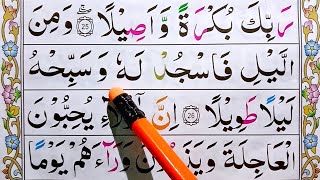 رَبِّكَ بُكْرَةً وَّاَصِيْلًا ۝25 وَمِنَ
الَّيْلِ فَاسْجُدْ لَهٗ وَسَبِّحْهُ
لَيْلًا طَوِيْلًا ۝26 اِنَّ يُحِبُّوْنَ
الْعَاجِلَةَ وَرَآءَهُمْ يَوْمًا